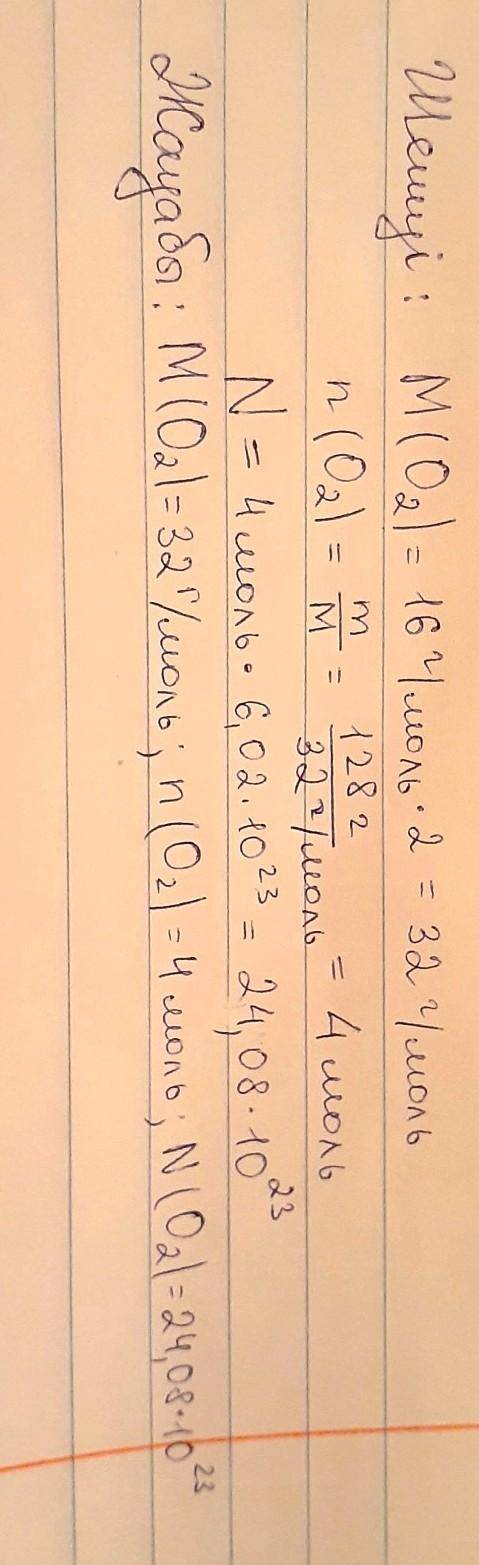 Шешуі: M(O₂) = 16 г/моль · 2 = 32 г/моль
n(O₂) = m/M = 128 г / 32 г/моль = 4 моль
N = 4 моль · 6,02 · 10²³ = 24,08 · 10²³
Жауабы: M(O₂) = 32 г/моль; n(O₂) = 4 моль; N(O₂) = 24,08 · 10²³